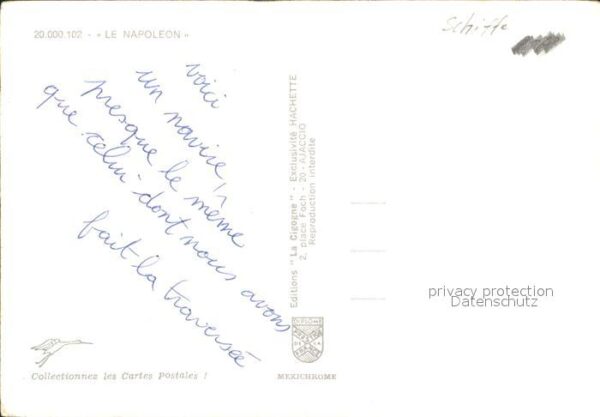 20.000.102 - « LE NAPOLEON »
Schiffe
voici
un navire,
presque le même
que celui dont nous avons
fait la traversée
Editions "La Cigogne" - Exclusivité HACHETTE
2, place Foch - 20 - AJACCIO
Reproduction interdite
privacy protection
Datenschutz
Collectionnez les Cartes Postales !
MEXICHROME